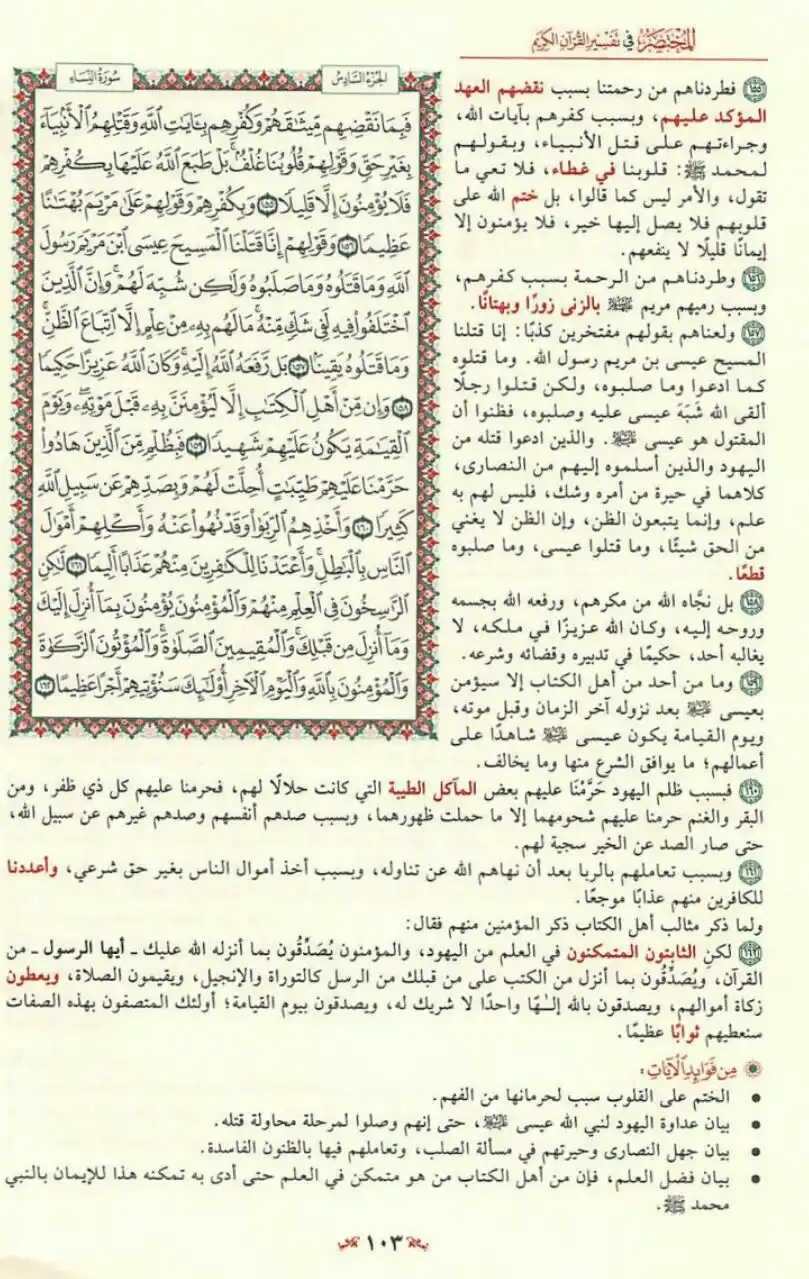 المختصر في تفسير القرآن الكريم
الجزء السادس
سورة النساء
فَبِمَا نَقْضِهِم مِّيثَٰقَهُمْ وَكُفْرِهِم بِـَٔايَٰتِ ٱللَّهِ وَقَتْلِهِمُ ٱلْأَنۢبِيَآءَ
بِغَيْرِ حَقٍّ وَقَوْلِهِمْ قُلُوبُنَا غُلْفٌۢ بَلْ طَبَعَ ٱللَّهُ عَلَيْهَا بِكُفْرِهِمْ
فَلَا يُؤْمِنُونَ إِلَّا قَلِيلًا ١٥٥ وَبِكُفْرِهِمْ وَقَوْلِهِمْ عَلَىٰ مَرْيَمَ بُهْتَٰنًا
عَظِيمًا ١٥٦ وَقَوْلِهِمْ إِنَّا قَتَلْنَا ٱلْمَسِيحَ عِيسَى ٱبْنَ مَرْيَمَ رَسُولَ
ٱللَّهِ وَمَا قَتَلُوهُ وَمَا صَلَبُوهُ وَلَٰكِن شُبِّهَ لَهُمْ ۚ وَإِنَّ ٱلَّذِينَ
ٱخْتَلَفُوا۟ فِيهِ لَفِى شَكٍّ مِّنْهُ ۚ مَا لَهُم بِهِۦ مِنْ عِلْمٍ إِلَّا ٱتِّبَاعَ ٱلظَّنِّ ۚ
وَمَا قَتَلُوهُ يَقِينًۢا ١٥٧ بَل رَّفَعَهُ ٱللَّهُ إِلَيْهِ ۚ وَكَانَ ٱللَّهُ عَزِيزًا حَكِيمًا
١٥٨ وَإِن مِّنْ أَهْلِ ٱلْكِتَٰبِ إِلَّا لَيُؤْمِنَنَّ بِهِۦ قَبْلَ مَوْتِهِۦ ۖ وَيَوْمَ
ٱلْقِيَٰمَةِ يَكُونُ عَلَيْهِمْ شَهِيدًا ١٥٩ فَبِظُلْمٍ مِّنَ ٱلَّذِينَ هَادُوا۟
حَرَّمْنَا عَلَيْهِمْ طَيِّبَٰتٍ أُحِلَّتْ لَهُمْ وَبِصَدِّهِمْ عَن سَبِيلِ ٱللَّهِ
كَثِيرًا ١٦٠ وَأَخْذِهِمُ ٱلرِّبَوٰا۟ وَقَدْ نُهُوا۟ عَنْهُ وَأَكْلِهِمْ أَمْوَٰلَ
ٱلنَّاسِ بِٱلْبَٰطِلِ ۚ وَأَعْتَدْنَا لِلْكَٰفِرِينَ مِنْهُمْ عَذَابًا أَلِيمًا ١٦١ لَّٰكِنِ
ٱلرَّٰسِخُونَ فِى ٱلْعِلْمِ مِنْهُمْ وَٱلْمُؤْمِنُونَ يُؤْمِنُونَ بِمَآ أُنزِلَ إِلَيْكَ
وَمَآ أُنزِلَ مِن قَبْلِكَ ۚ وَٱلْمُقِيمِينَ ٱلصَّلَوٰةَ ۚ وَٱلْمُؤْتُونَ ٱلزَّكَوٰةَ
وَٱلْمُؤْمِنُونَ بِٱللَّهِ وَٱلْيَوْمِ ٱلْأَخِرِ أُو۟لَٰٓئِكَ سَنُؤْتِيهِمْ أَجْرًا عَظِيمًا ١٦٢
١٥٥ فطردناهم من رحمتنا بسبب نقضهم العهد
المؤكد عليهم، وبسبب كفرهم بآيات الله،
وجراءتهم على قتل الأنبياء، وبقولهم
لمحمد ﷺ: قلوبنا في غطاء، فلا تعي ما
تقول، والأمر ليس كما قالوا، بل ختم الله على
قلوبهم فلا يصل إليها خير، فلا يؤمنون إلا
إيمانًا قليلًا لا ينفعهم.
١٥٦ وطردناهم من الرحمة بسبب كفرهم،
وبسبب رميهم مريم بالزنى زورًا وبهتانًا.
١٥٧ ولعناهم بقولهم مفتخرين كذبًا: إنا قتلنا
المسيح عيسى بن مريم رسول الله. وما قتلوه
كما ادعوا وما صلبوه، ولكن قتلوا رجلًا
ألقى الله شَبَهَ عيسى عليه وصلبوه، فظنوا أن
المقتول هو عيسى. والذين ادعوا قتله من
اليهود والذين أسلموه إليهم من النصارى،
كلاهما في حيرة من أمره وشك، فليس لهم به
علم، وإنما يتبعون الظن، وإن الظن لا يغني
من الحق شيئًا، وما قتلوا عيسى، وما صلبوه
قطعًا.
١٥٨ بل نجَّاه الله من مكرهم، ورفعه الله بجسمه
وروحه إليه، وكان الله عزيزًا في ملكه، لا
يغالبه أحد، حكيمًا في تدبيره وقضائه وشرعه.
١٥٩ وما من أحد من أهل الكتاب إلا سيؤمن
بعيسى بعد نزوله آخر الزمان وقبل موته،
ويوم القيامة يكون عيسى شاهدًا على
أعمالهم؛ ما يوافق الشرع منها وما يخالف.
١٦٠ فبسبب ظلم اليهود حَرَّمْنَا عليهم بعض المآكل الطيبة التي كانت حلالًا لهم، فحرمنا عليهم كل ذي ظفر، ومن
البقر والغنم حرمنا عليهم شحومهما إلا ما حملت ظهورهما، وبسبب صدهم أنفسهم وصدهم غيرهم عن سبيل الله،
حتى صار الصد عن الخير سجية لهم.
١٦١ وبسبب تعاملهم بالربا بعد أن نهاهم الله عن تناوله، وبسبب أخذ أموال الناس بغير حق شرعي، وأعددنا
للكافرين منهم عذابًا موجعًا.
ولما ذكر مثالب أهل الكتاب ذكر المؤمنين منهم فقال:
١٦٢ لكنِ الثابتون المتمكنون في العلم من اليهود، والمؤمنون يُصَدِّقُون بما أنزله الله عليك - أيها الرسول - من
القرآن، ويُصَدِّقُون بما أنزل من الكتب على من قبلك من الرسل كالتوراة والإنجيل، ويقيمون الصلاة، ويعطون
زكاة أموالهم، ويصدقون بالله إلـٰهًا واحدًا لا شريك له، ويصدقون بيوم القيامة؛ أولئك المتصفون بهذه الصفات
سنعطيهم ثوابًا عظيمًا.
من فوائد الآيات:
• الختم على القلوب سبب لحرمانها من الفهم.
• بيان عداوة اليهود لنبي الله عيسى، حتى إنهم وصلوا لمرحلة محاولة قتله.
• بيان جهل النصارى وحيرتهم في مسألة الصلب، وتعاملهم فيها بالظنون الفاسدة.
• بيان فضل العلم، فإن من أهل الكتاب من هو متمكن في العلم حتى أدى به تمكنه هذا للإيمان بالنبي
محمد ﷺ.
١٠٣